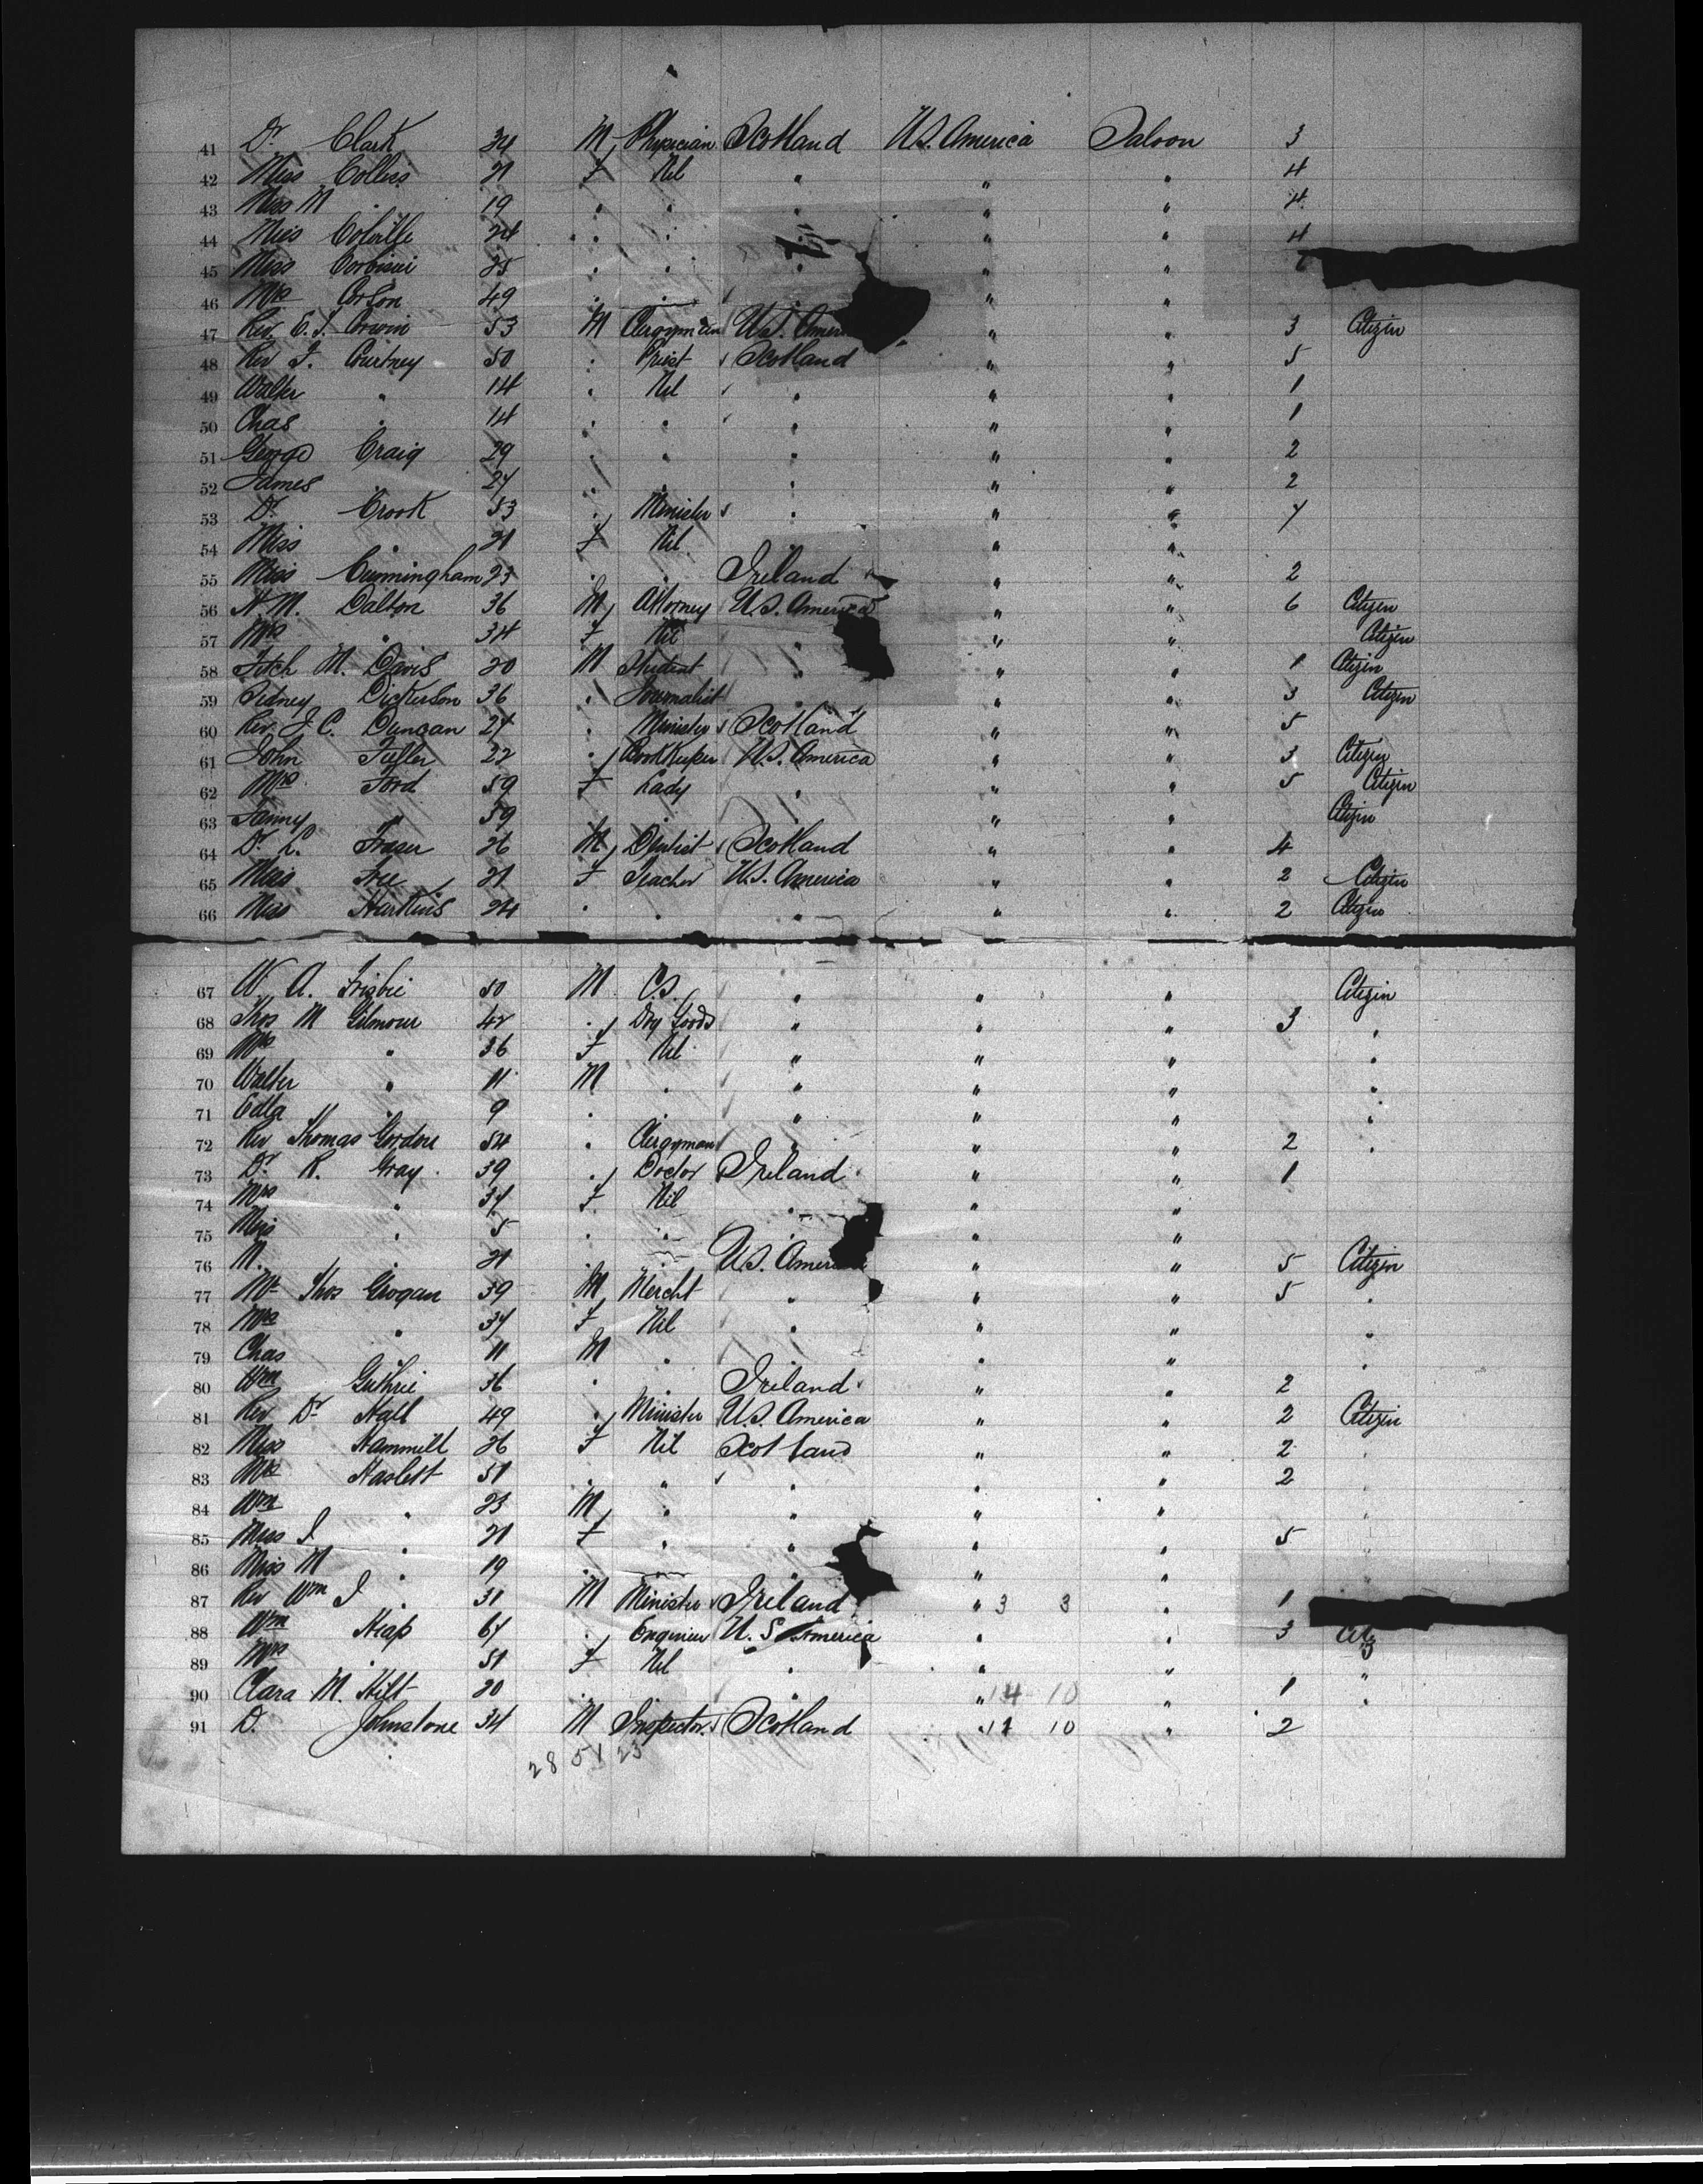 41 Dr Clark 34 M Physician Scotland U.S. America Saloon 3
42 Miss Collins 21 F Nil " " " 4
43 Miss M " 19 " " " " " 4
44 Miss Colville 24 " " " " " 4
45 Miss 25 " " " " "
46 Mrs Corson 49 " " " "
47 Rev. E. T. Corwin 53 M Clergyman U.S. Amer " " 3 Citizen
48 Rev F. Courtney 50 " Priest Scotland " " 5
49 Walter " 14 " Nil " " " 1
50 Chas " 14 " " " " " 1
51 George Craig 29 " " " " " 2
52 James " 27 " " " " " 2
53 Dr Crook 53 " Minister " " " 7
54 Miss " 21 F Nil " " "
55 Miss Cunningham 23 " " Ireland " " 2
56 N. M. Dalton 36 M Attorney U.S. America " " 6 Citizen
57 Mrs " 34 F Nil " " " Citizen
58 Fitch H. Davis 20 M Student " " " 1 Citizen
59 Sidney Dickerson 36 " Journalist " " " 3 Citizen
60 Rev. J. C. Duncan 27 " Minister Scotland " " 5
61 John Fuller 22 " Bookkeeper U.S. America " " 3 Citizen
62 Mrs Ford 59 F Lady " " " 5 Citizen
63 Fanny " 59 " " " " " Citizen
64 Dr L. Fraser 26 M Dentist Scotland " " 4
65 Miss 21 F Teacher U.S. America " " 2 Citizen
66 Miss Harkins 24 " " " " " 2 Citizen
67 W. A. Frisbie 50 M C.S. " " " Citizen
68 Thos M Gilmour 42 " Dry Goods " " " 3 "
69 Mrs " 36 F Nil " " " "
70 Walter " 11 M " " " " "
71 Edla " 9 " " " " " "
72 Rev Thomas Gordon 54 " Clergyman " " " 2 "
73 Dr R. Gray 39 " Doctor Ireland " " 1
74 Mrs " 37 F Nil " " "
75 Miss " 5 " " " " "
76 M. " 21 " " U.S. America " " 5 Citizen
77 Mr Thos Grogan 39 M Mercht " " " 5 "
78 Mrs " 37 F Nil " " " "
79 Chas " 11 M " " " " "
80 Wm Guthrie 36 " " Ireland " " 2
81 Rev Dr Hall 49 " Minister U.S. America " " 2 Citizen
82 Miss Hammill 26 F Nil Scotland " " 2 "
83 Mrs Haslett 51 " " " " " 2 "
84 Wm " 23 M " " " "
85 Miss J " 21 F " " " " 5
86 Miss M " 19 " " " " "
87 Rev Wm J " 31 M Minister Ireland " 3 3 " 1
88 Wm Heap 67 " Engineer U.S. America " " 3 Citz
89 Mrs " 51 F Nil " " " "
90 Clara M. Hilt 20 " " " " 14 10 " 1 "
91 D. Johnstone 34 M Inspector Scotland " 11 10 " 2
28 51 23